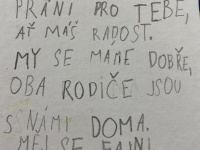 PŘÁNÍ PRO TEBE,
AŤ MÁŠ RADOST.
MY SE MÁME DOBŘE,
OBA RODIČE JSOU
S NÁMI DOMA.
MĚJ SE FAJN